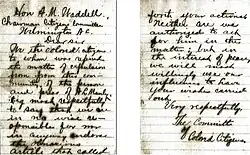 Hon A. M. Waddell,
Chairman Citizens Committee
Wilmington N.C.
Dear Sir
We the colored citizens
to whom was referred
the matter of expulsion
from this com-
munity of the person
and press of A. L. Manly
beg most respectfully
to say that we are
in no wise re-
sponsible for nor
in any way endorse
the obnoxious
article that called
forth your actions.
Neither are we
authorized to act
for him in this
matter; but in
the interest of peace,
we will most
willingly use our
influence to have
your wishes carried
out.
Very respectfully,
The Committee
of Colored Citizens